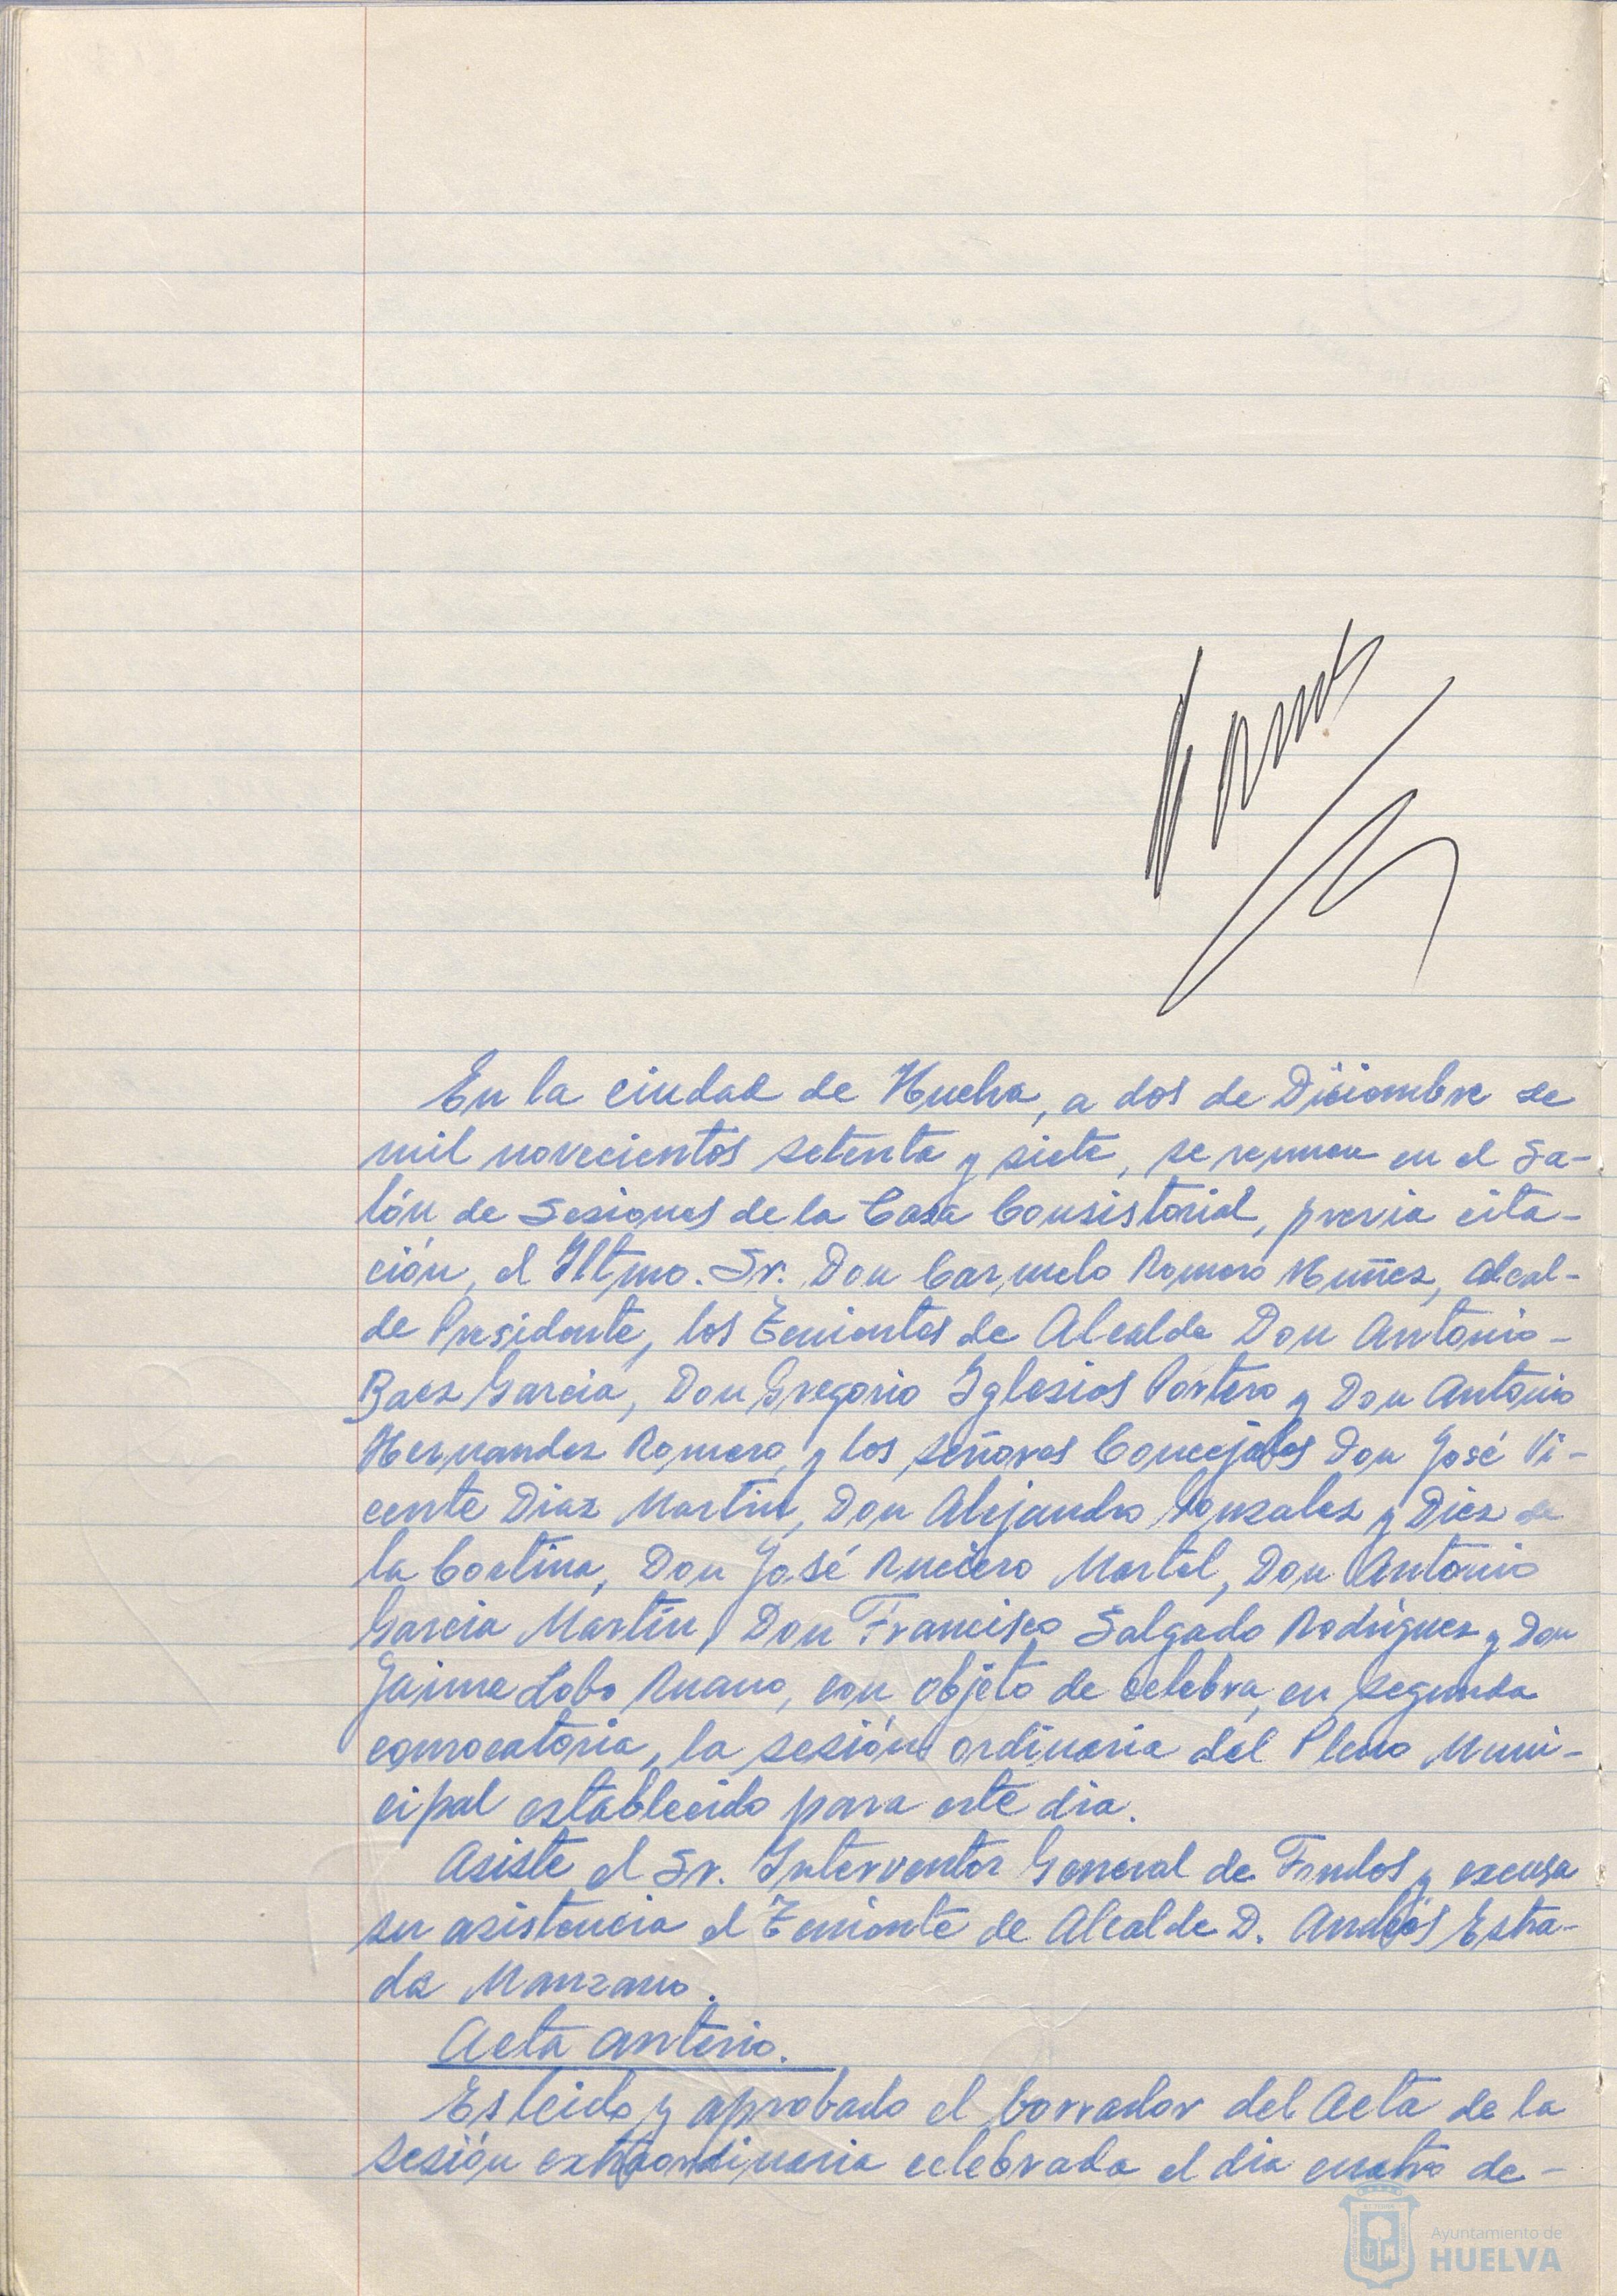 En la ciudad de Huelva, a dos de Diciembre de
mil novecientos setenta y siete, se reunen en el Sa-
lón de Sesiones de la Casa Consistorial, previa cita-
ción, el Iltmo. Sr. Don Carmelo Romero Nuñez, Alcal-
de Presidente, los Tenientes de Alcalde Don Antonio-
Baez Garcia, Don Gregorio Iglesias Portero y Don Antonio
Hernandez Romero, y los señores Concejales Don José Vi-
cente Diaz Martin, Don Alejandro Gonzalez y Diez de
la Cortina, Don José Rucero Martel, Don Antonio
Garcia Martín, Don Francisco Salgado Rodriguez y Don
Jaime Lobo Ruano, con objeto de celebra, en segunda
convocatoria, la sesión ordinaria del Pleno Muni-
cipal establecido para este dia.
Asiste el Sr. Interventor General de Fondos y excusa
su asistencia el Teniente de Alcalde D. Andrés Estra-
da Manzano.
Acta anterio.
Es leido y aprobado el borrador del Acta de la
sesión extraordinaria celebrada el dia cuatro de-
Ayuntamiento de
HUELVA